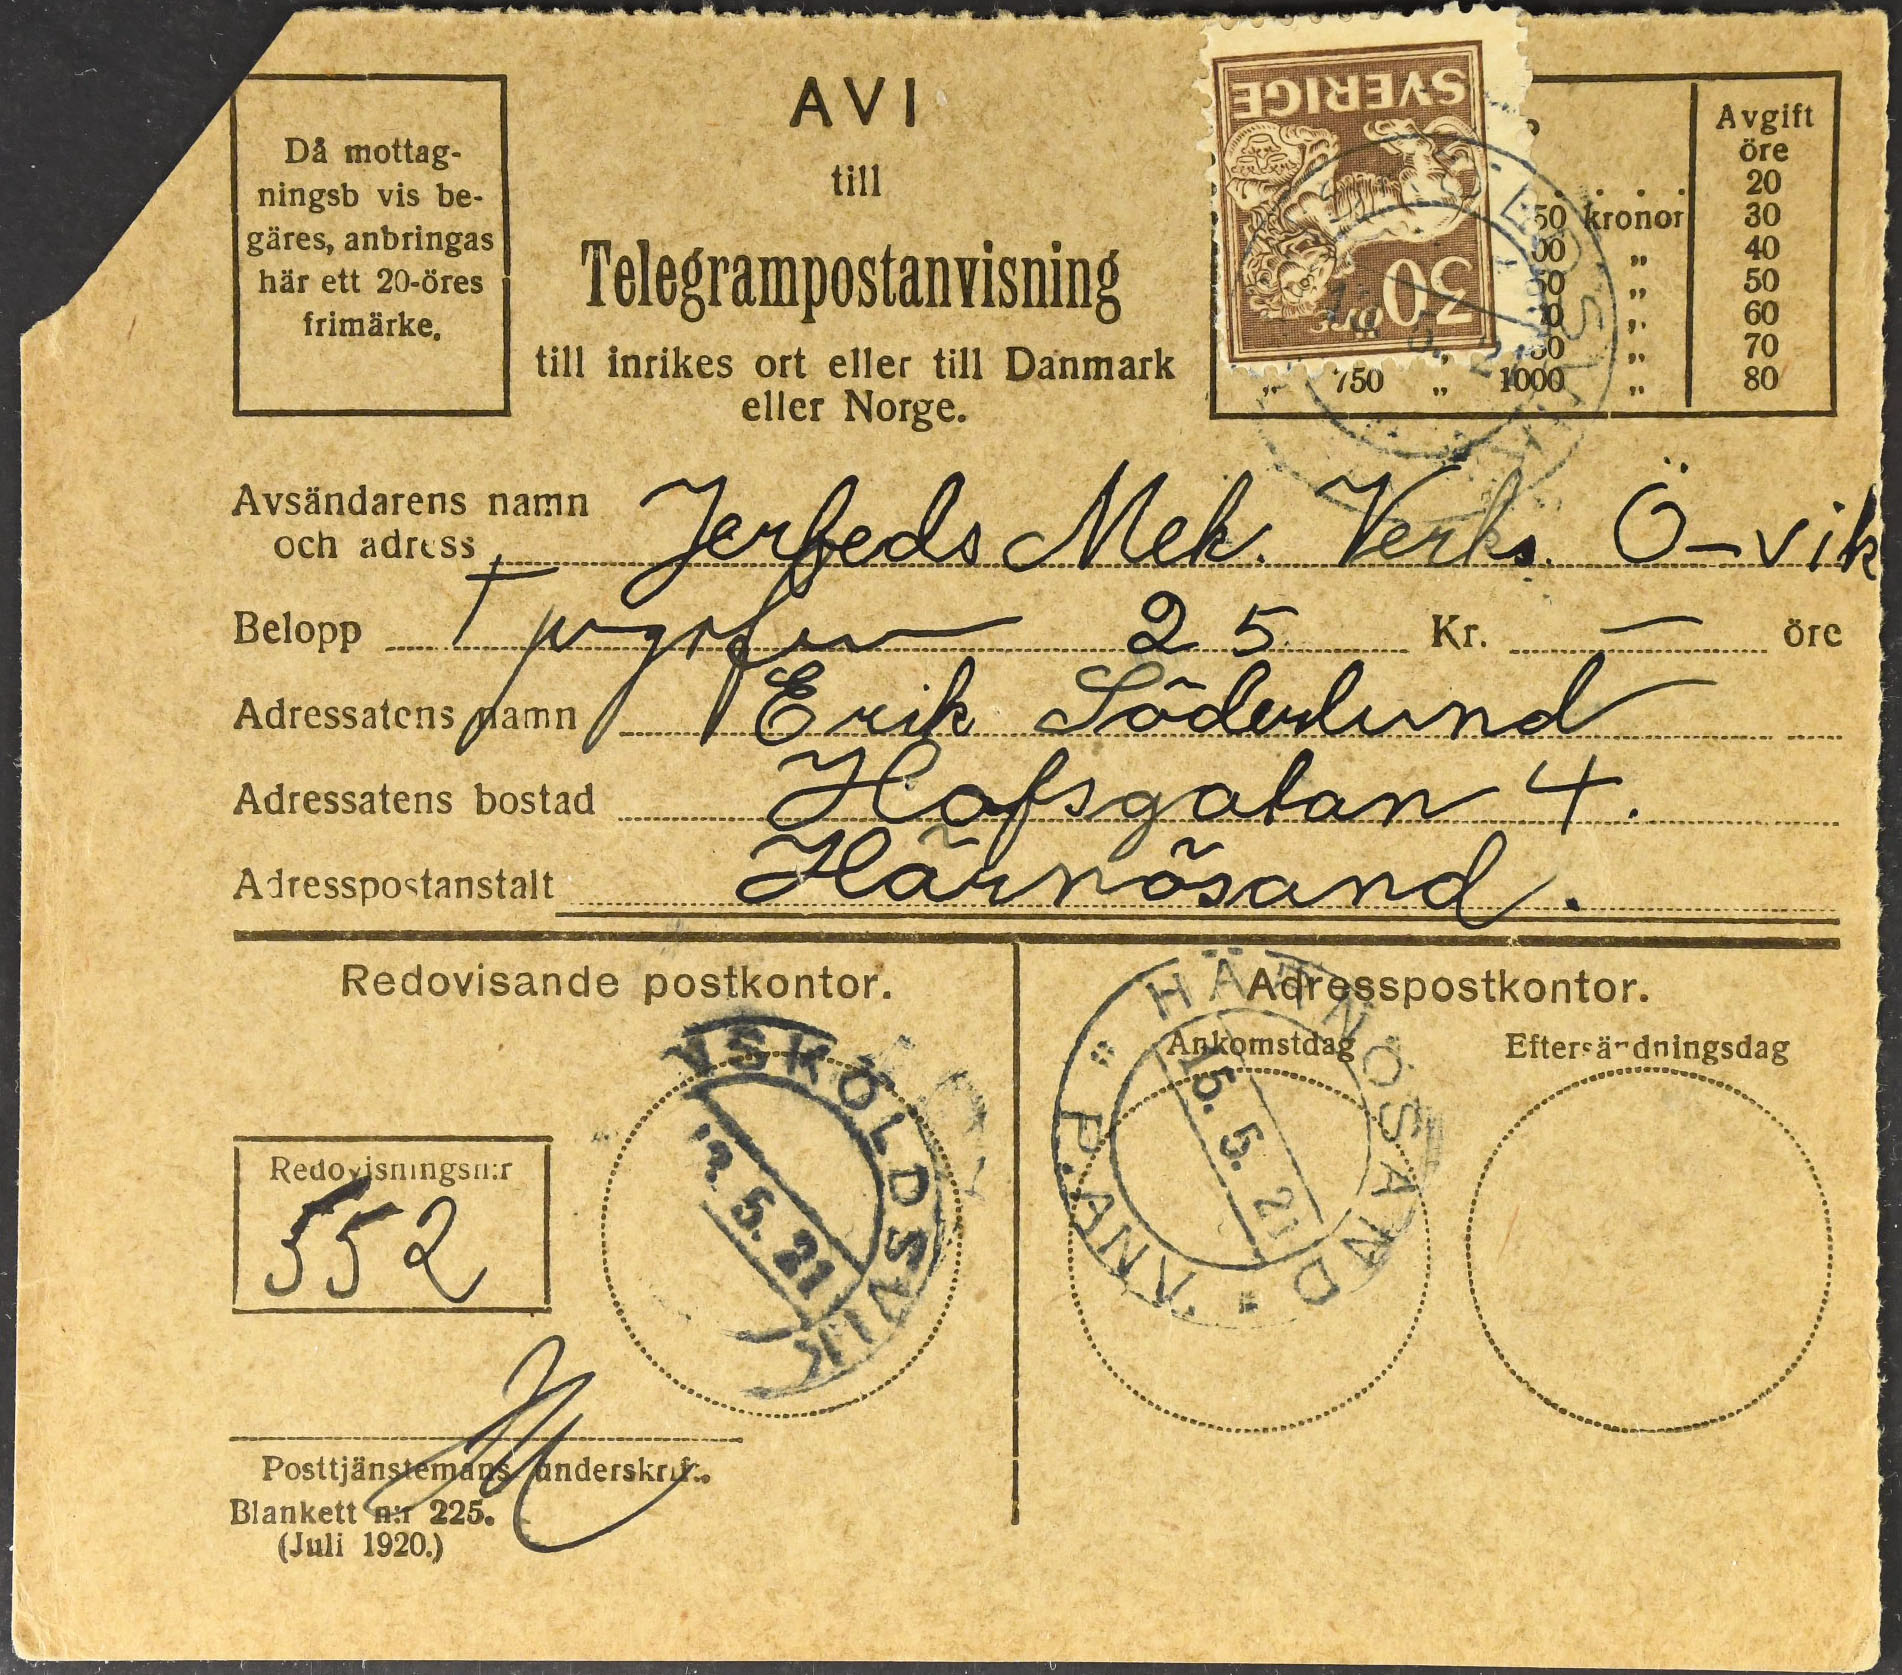 Då mottag-
ningsb vis be-
gäres, anbringas
här ett 20-öres
frimärke.
AVI
till
Telegrampostanvisning
till inrikes ort eller till Danmark
eller Norge.
SVERIGE
30 ÖRE
Avgift
öre
20
50 kronor 30
00 „ 40
50 „ 50
„ 60
„ „ 70
„ 750 „ 1000 „ 80
Avsändarens namn
och adress Jerfeds Mek. Verks. Ö-vik
Belopp 25 Kr. — öre
Adressatens namn Erik Söderlund
Adressatens bostad Hofsgatan 4.
Adresspostanstalt Härnösand.
Redovisande postkontor.
VSKÖLDSVIK
5. 21
Redovisningsn:r
552
Posttjänstemans underskrift.
Blankett n:r 225.
(Juli 1920.)
Adresspostkontor.
Ankomstdag
Eftersändningsdag
HÄRNÖSAND
P.ANV.
15. 5. 21